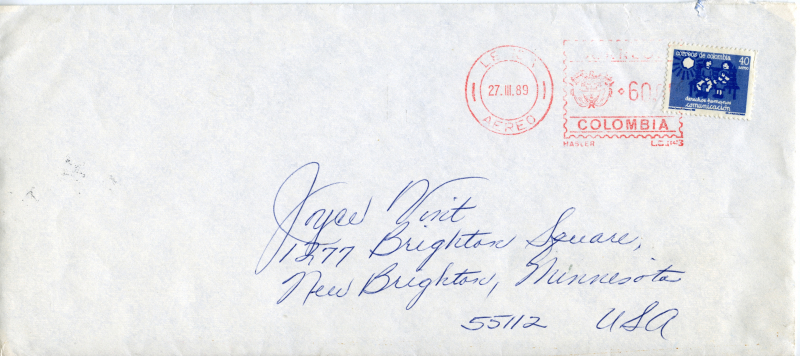 27.III.89
AEREO
COLOMBIA
HASLER
correos de colombia
40
aéreo
derechos humanos
comunicación
Joyce Visit
1277 Brighton Square,
New Brighton, Minnesota
55112 USA